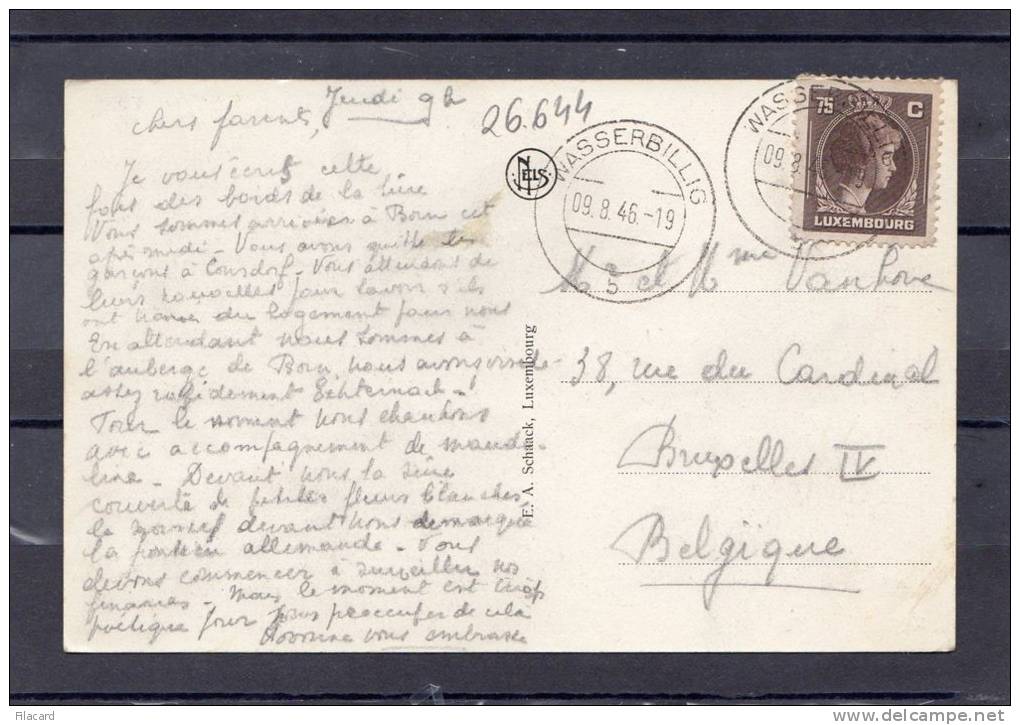 Jeudi 9h
chers parents,
26.644
Je vous écris cette
fois des bords de la Sûre
Nous sommes arrivées à Born cet
après midi - Nous avons quitté les
garçons à Consdorf - Nous attendons de
leurs nouvelles pour savoir s'ils
ont trouvé du logement pour nous
En attendant nous sommes à
l'auberge de Born, nous avons visité
assez rapidement Echternach -
Pour le moment nous chantons
avec accompagnement de mando-
line - Devant nous la Sûre
couverte de petites fleurs blanches
devant nous
la allemande - Nous
devons commencer à surveiller nos
finances - Mais le moment est trop
poétique pour nous préoccuper de cela
vous embrasse
NELS
E. A. Schaack, Luxembourg
WASSERBILLIG
09. 8. 46.-19
b
WASSERBILLIG
09. 8.
75 C
LUXEMBOURG
M et Mme Vanhove
38, rue du Cardinal
Bruxelles IV
Belgique
Filacard
delcampe.net